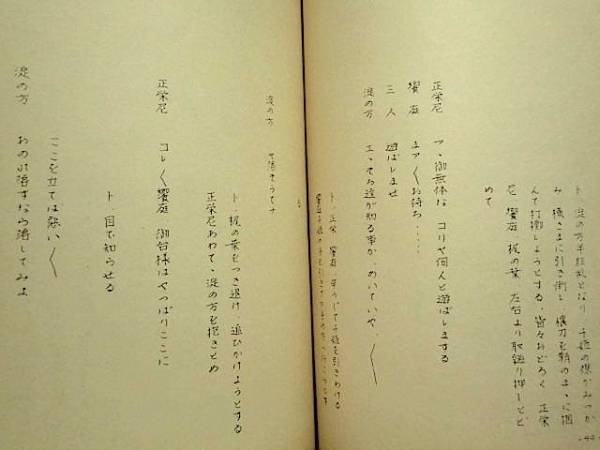 ト 淀の方半狂乱となり 千姫の襟がみつか
み 横ざまに引き倒し 懐刀を鞘のまゝに掴
んで打擲しようとする、皆々おどろく 正栄
尼 饗庭 梶の葉 左右より取縋り押しとど
めて
正栄尼 アヽ御無体な コリャ何んと遊ばしまする
饗庭 まアくお待ち‥‥‥
三人 遊ばしませ
淀の方 エヽそち達が知る事か、のいていや、〳〵
ト 正栄 饗庭
る
淀の方
ト 梶の葉をつき退け 追ひかけようとする
正栄尼あわて、淀の方を抱きとめ
正栄尼 コレ〳〵饗庭 御台様はやっぱりここに
ト 目で知らせる
ここを立ては悪い〳〵
淀の方 おのれ落すなら落してみよ
-44-